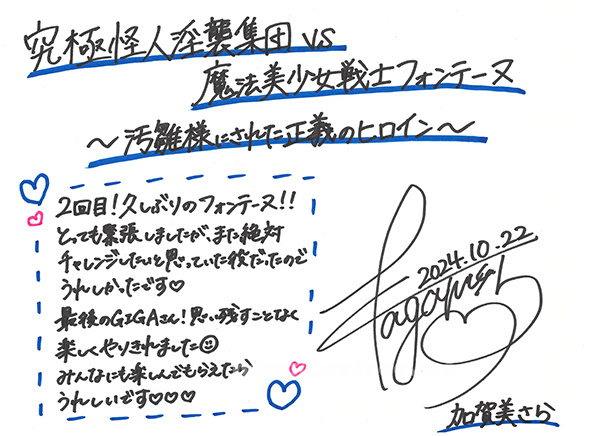 究極怪人淫襲集団 VS
魔法美少女戦士フォンテーヌ
〜汚雛様にされた正義のヒロイン〜
2回目!久しぶりのフォンテーヌ!!
とっても緊張しましたが、また絶対
チャレンジしたいと思っていた役だったので
うれしかったです♡
最後のGIGAさん!思い残すことなく
楽しくやりきれました☺
みんなにも楽しんでもらえたら
うれしいです♡♡♡
2024.10.22
加賀美さら